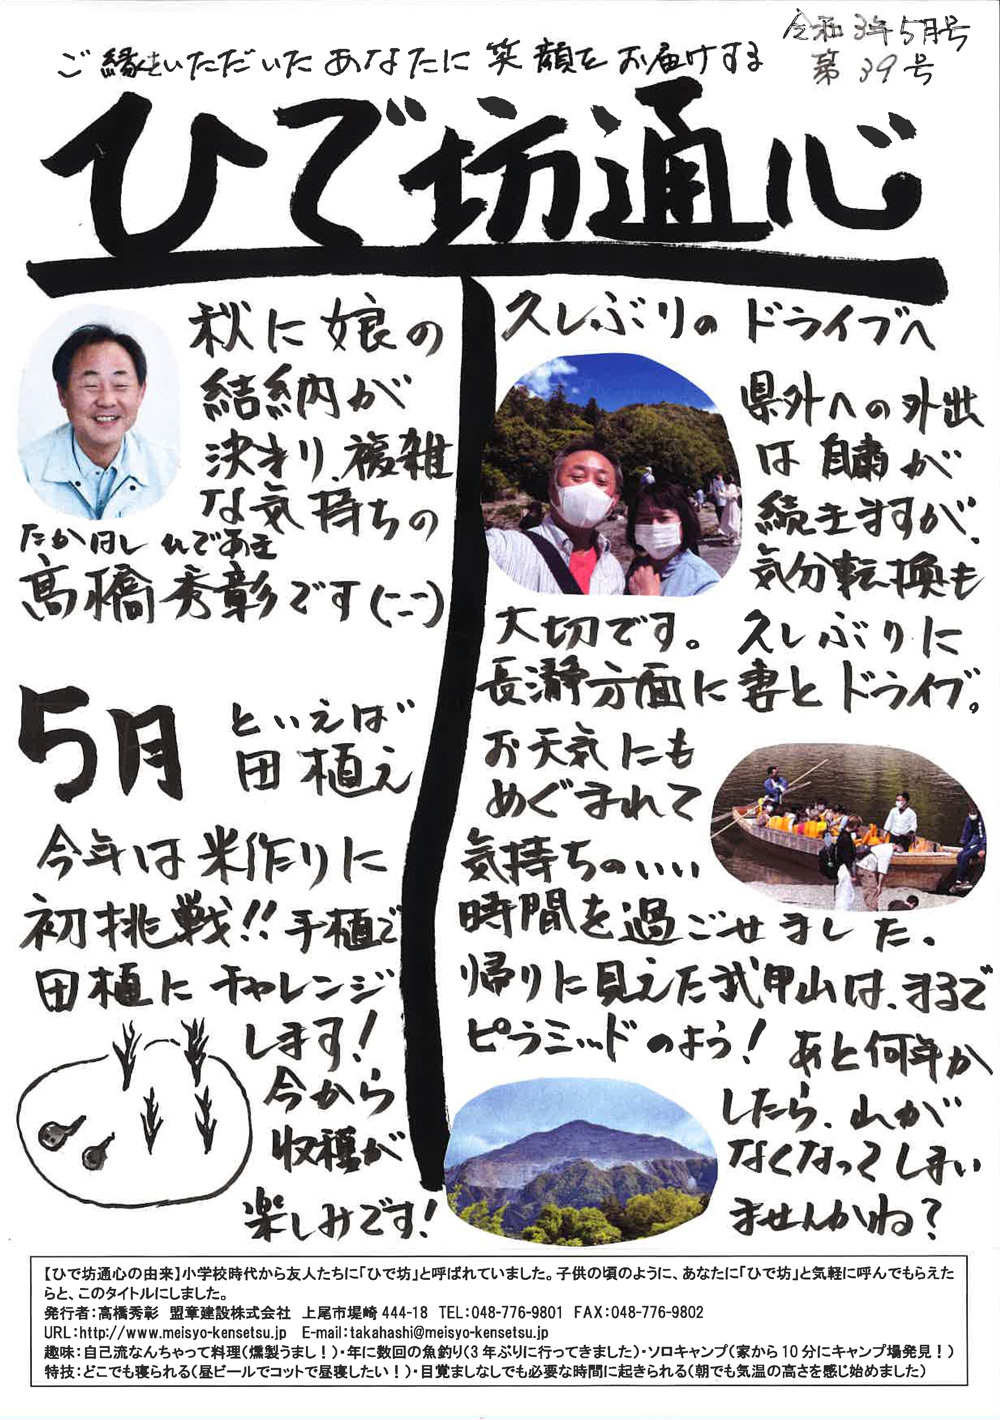 令和3年5月号
第39号
ご縁をいただいたあなたに笑顔をお届けする
ひで坊通心
秋に娘の
結納が
決まり、複雑
な気持ちの
たかはし ひであき
髙橋秀彰です(ニニ)
5月
といえば
田植え
今年は米作りに
初挑戦!!手植で
田植にチャレンジ
します!
今から
収穫が
楽しみです!
久しぶりのドライブへ
県外への外出
は自粛が
続きますが、
気分転換も
大切です。久しぶりに
長瀞方面に妻とドライブ。
お天気にも
めぐまれて
気持ちのいい
時間を過ごせました。
帰りに見えた武甲山は、まるで
ピラミッドのよう!あと何年か
したら、山が
なくなってしまい
ませんかね?
【ひで坊通心の由来】小学校時代から友人たちに「ひで坊」と呼ばれていました。子供の頃のように、あなたに「ひで坊」と気軽に呼んでもらえた
らと、このタイトルにしました。
発行者:髙橋秀彰 盟章建設株式会社 上尾市堤崎444-18 TEL:048-776-9801 FAX:048-776-9802
URL:http://www.meisyo-kensetsu.jp E-mail:takahashi@meisyo-kensetsu.jp
趣味:自己流なんちゃって料理(燻製うまし!)・年に数回の魚釣り(3年ぶりに行ってきました)・ソロキャンプ(家から10分にキャンプ場発見!)
特技:どこでも寝られる(昼ビールでコットで昼寝したい!)・目覚ましなしでも必要な時間に起きられる(朝でも気温の高さを感じ始めました)